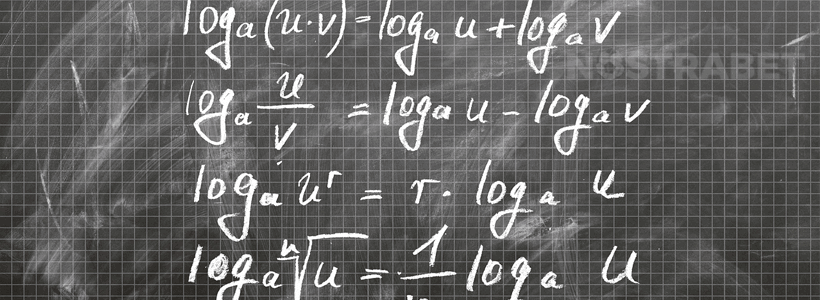 logₐ(u·v) = logₐ u + logₐ v
NOSTRABET
logₐ u/v = logₐ u - logₐ v
logₐ uʳ = r · logₐ u
logₐ ⁿ√u = 1/n logₐ u